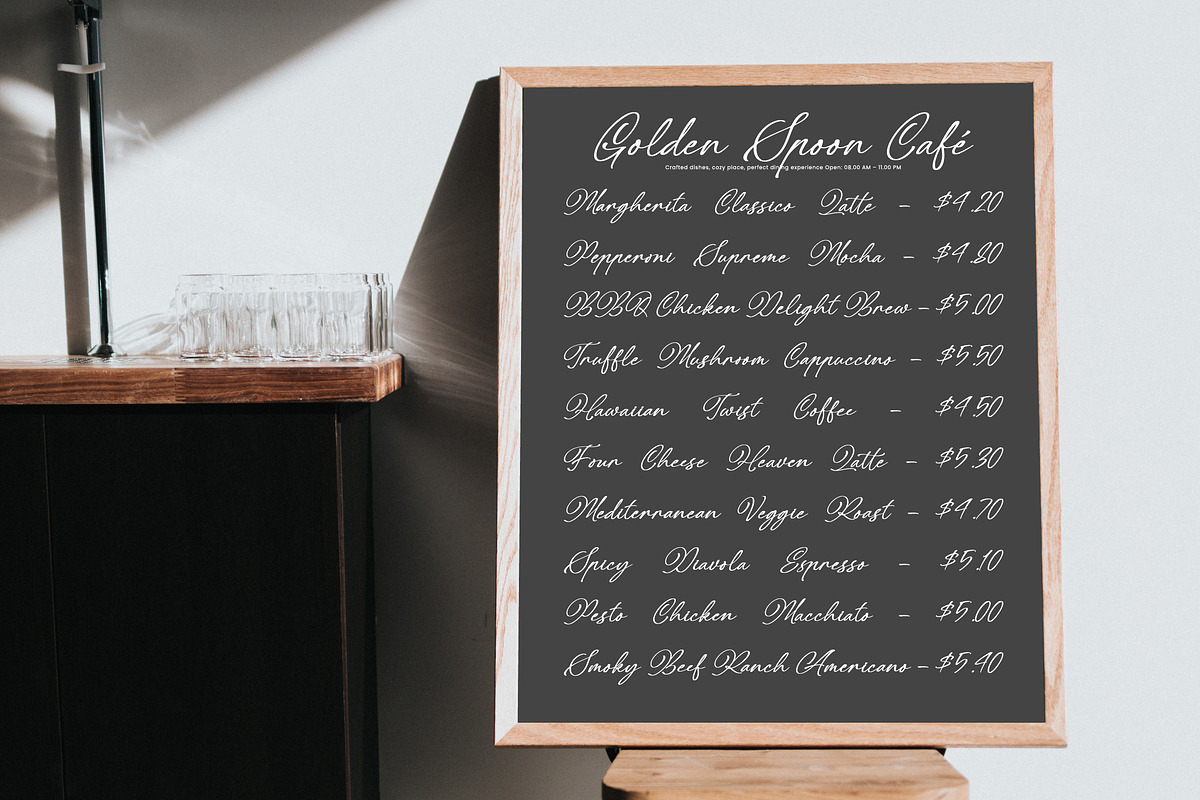 Golden Spoon Café
Crafted dishes, cozy place, perfect dining experience Open: 08.00 AM – 11.00 PM
Margherita Classico Latte – $4.20
Pepperoni Supreme Mocha – $4.80
BBQ Chicken Delight Brew – $5.00
Truffle Mushroom Cappuccino – $5.50
Hawaiian Twist Coffee – $4.50
Four Cheese Heaven Latte – $5.30
Mediterranean Veggie Roast – $4.70
Spicy Diavola Espresso – $5.10
Pesto Chicken Macchiato – $5.00
Smoky Beef Ranch Americano – $5.40